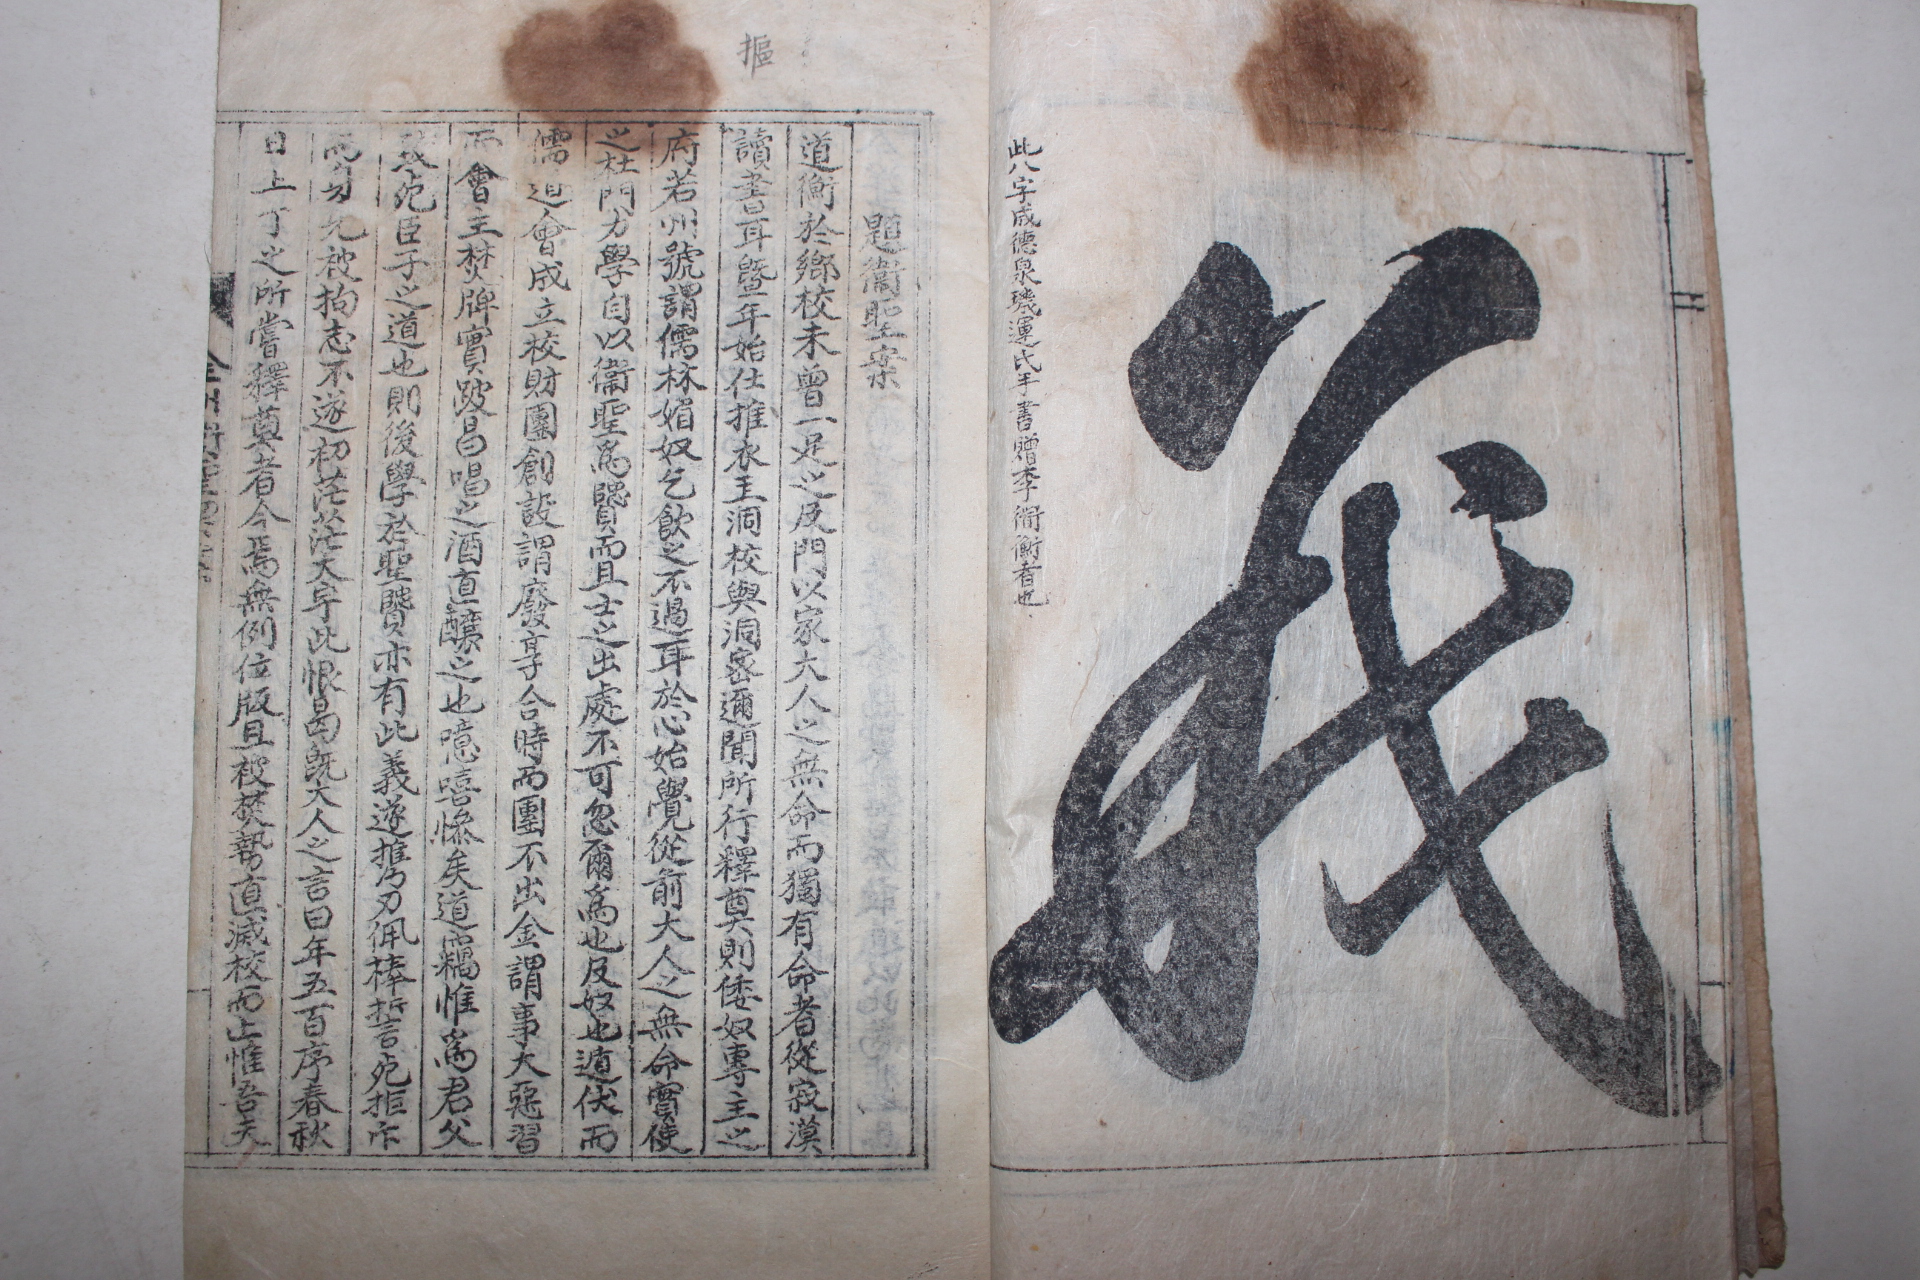 義
此八字成德泉璣運氏手書贈李衛衡者也
摳
題衛聖案
道衡於鄉校未曾一足之及門以家大人之無命而獨有命者從寂漠
讀書耳曁年始仕推衣王洞校與洞密邇聞所行釋奠則倭奴專主之
府若州號謂儒林媚奴乞飮之不過耳於心始覺從前大人之無命實使
之杜門力學自以衛聖爲賢而且士之出處不可忽爾爲也及奴也遁伏而
儒道會成立校財團創設謂廢享合時而團不出金謂事大惡習
而會主焚牌實跛曷唱之酒直釀之也噫嘻慘矣道竊惟爲君父
死臣子之道也則後學於聖賢亦有此義遂推乃刃佩棒誓死拒
而勿允被拘志不遂初茫茫大宇此恨曷旣大人之言曰年五百序春秋
日上丁之所嘗釋奠者今焉無例位版且被焚勢直滅校而止惟吾夫
全州衛聖